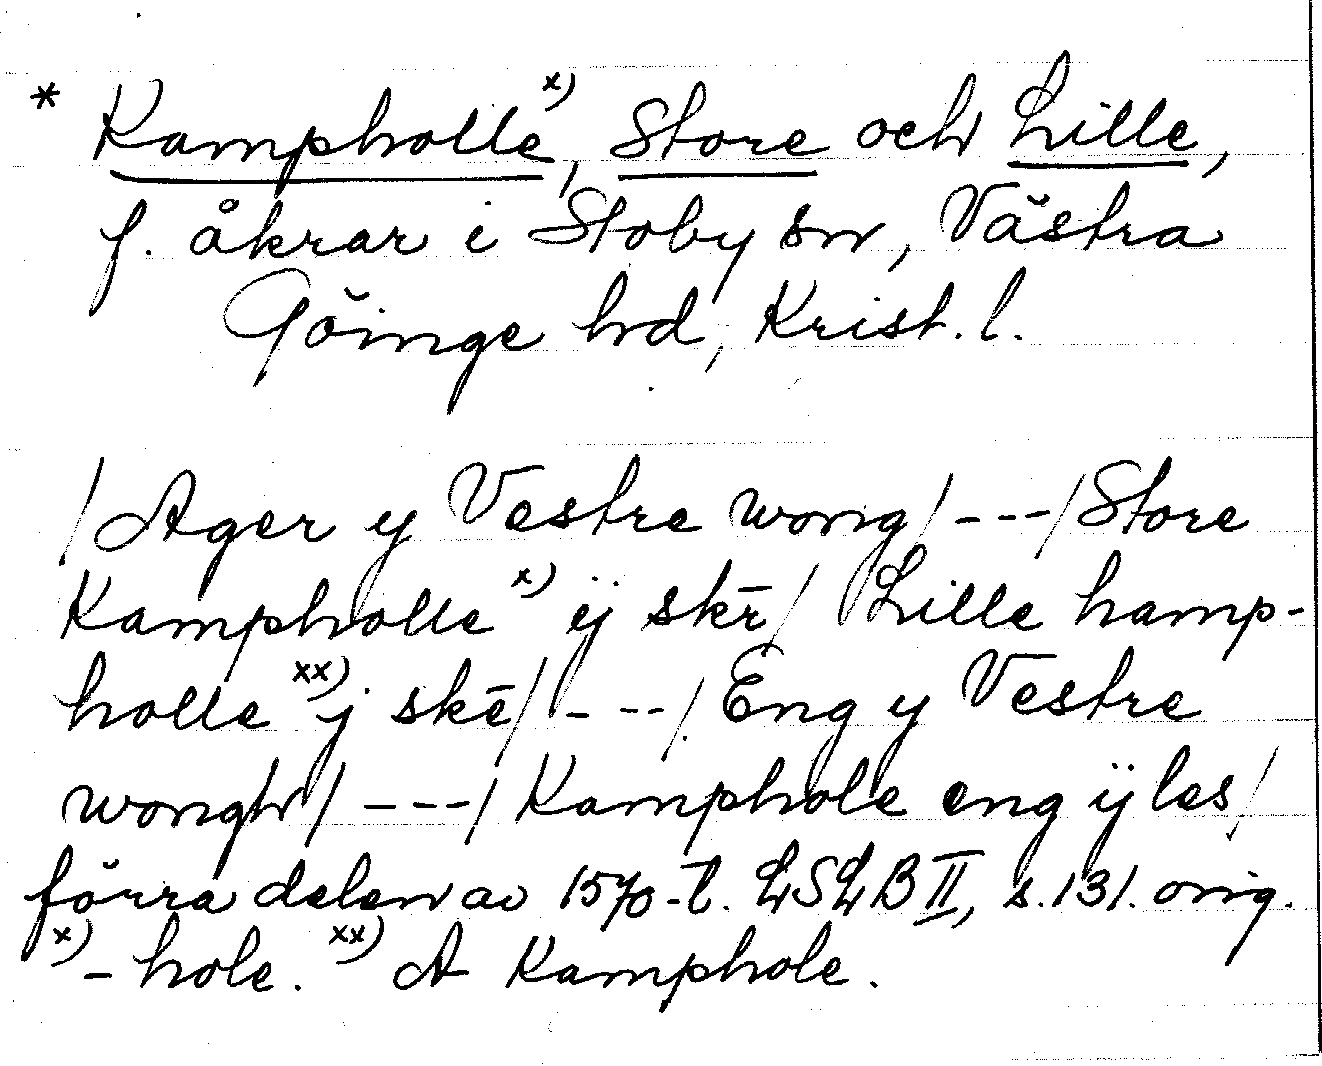 * Kampholle x), Store och Lille,
f. åkrar i Stoby sn, Västra
Göinge hd, Krist. l.
/Ager y Vestre wong/ ---/Store
Kampholle x) ÿ skē/ Lille hamp-
holle xx) j skē/ ---/ Eng y Vestre
wongh/ ---/ Kamphole eng ÿ les/
förra delen av 1570-t. LSLB II, s.131. orig.
x) -hole. xx) A Kamphole.